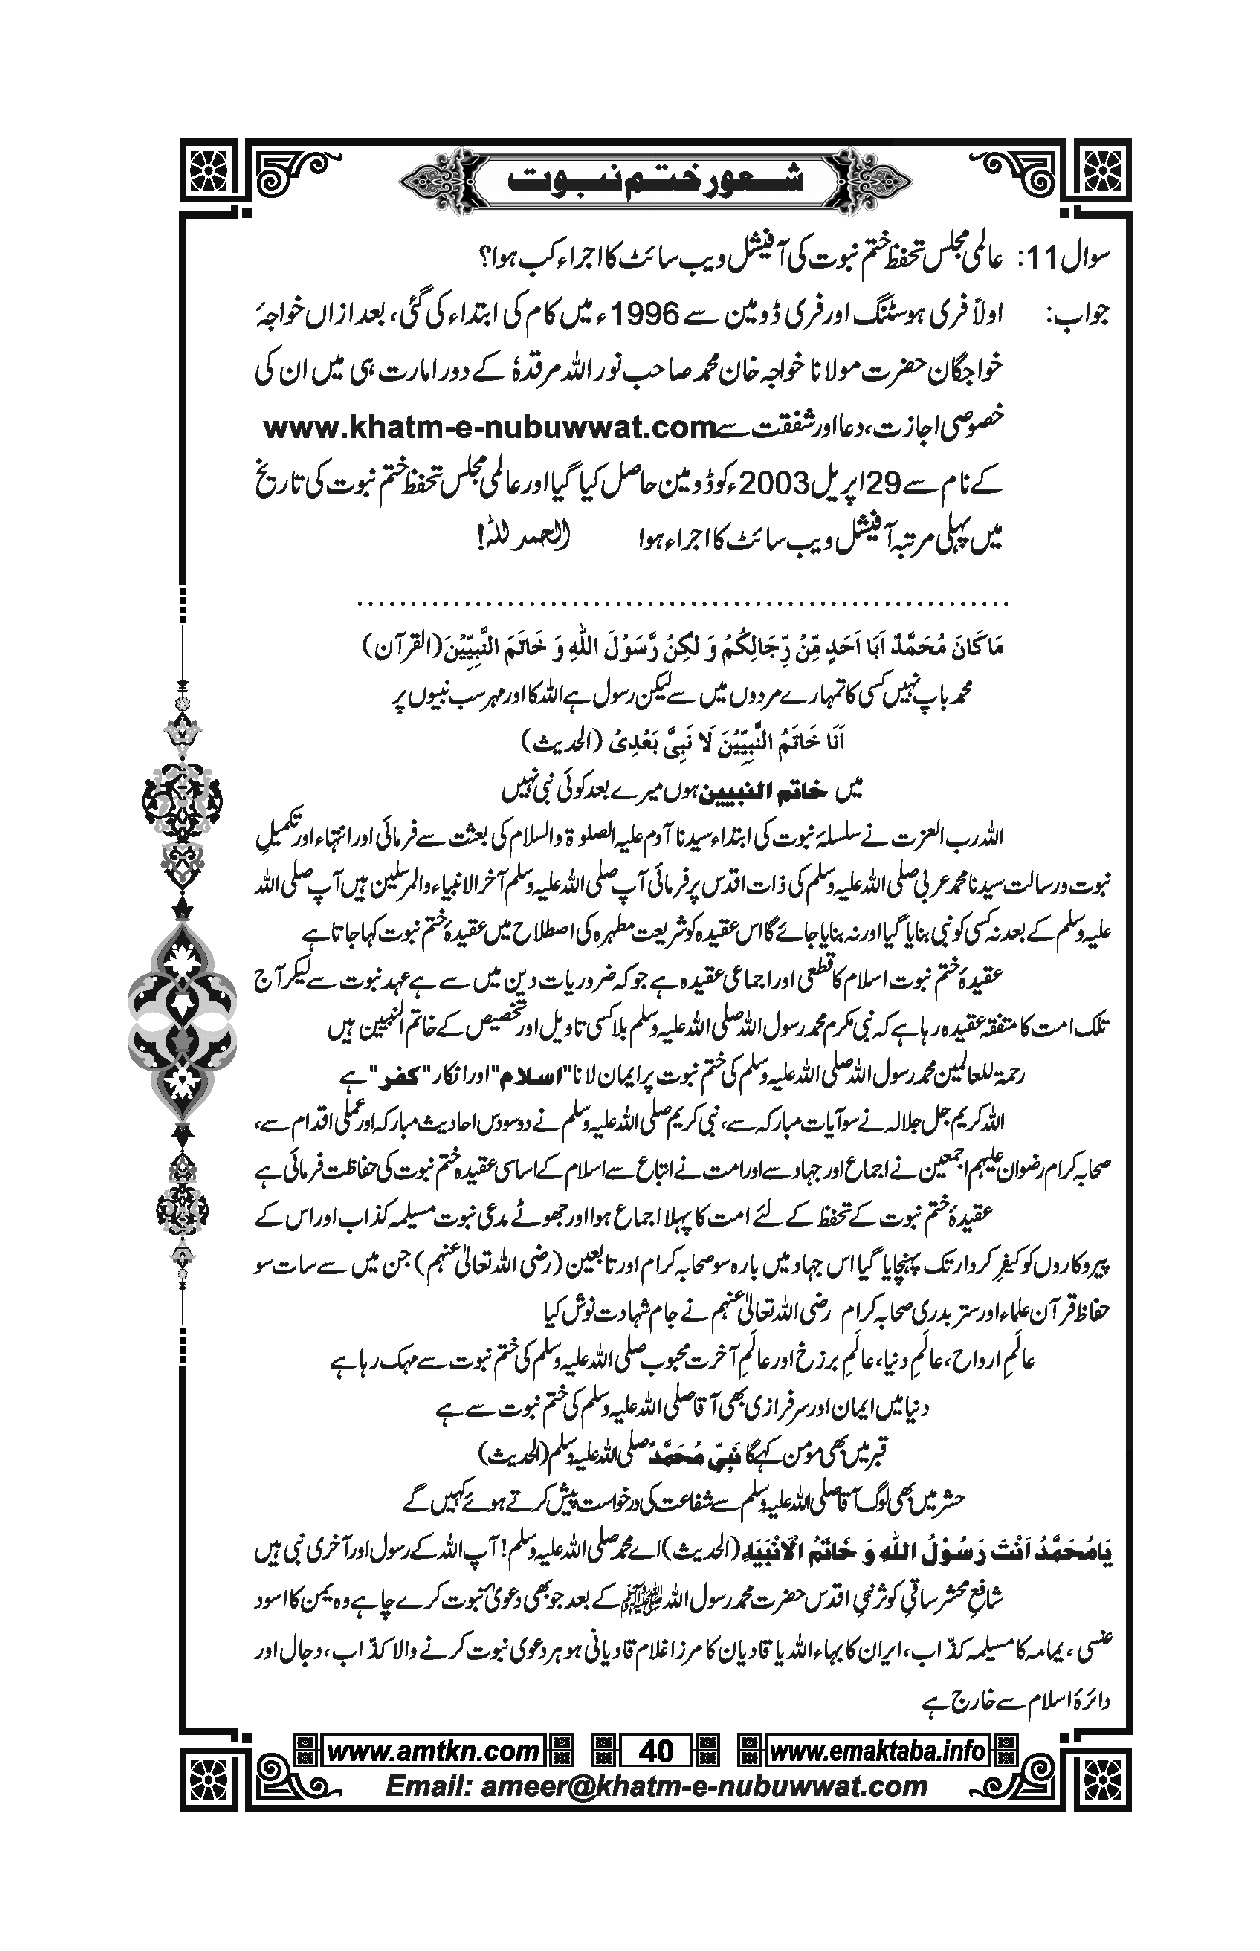 شعور ختم نبوت
سوال11: عالمی مجلس تحفظ ختم نبوت کی آفیشل ویب سائٹ کا اجراء کب ہوا؟
جواب: اولاً فری ہوسٹنگ اور فری ڈومین سے 1996ء میں کام کی ابتداء کی گئی، بعد ازاں خواجۂ
خواجگان حضرت مولانا خواجہ خان محمد صاحب نور اللہ مرقدہٗ کے دور امارت ہی میں ان کی
خصوصی اجازت، دعا اور شفقت سے www.khatm-e-nubuwwat.com
کے نام سے 29 اپریل 2003ء کو ڈومین حاصل کیا گیا اور عالمی مجلس تحفظ ختم نبوت کی تاریخ
میں پہلی مرتبہ آفیشل ویب سائٹ کا اجراء ہوا الحمد للہ!
مَا كَانَ مُحَمَّدٌ اَبَا اَحَدٍ مِّنْ رِّجَالِكُمْ وَ لٰكِنْ رَّسُوْلَ اللهِ وَ خَاتَمَ النَّبِيِّيْنَ (القرآن)
محمد باپ نہیں کسی کا تمہارے مردوں میں سے لیکن رسول ہے اللہ کا اور مہر سب نبیوں پر
اَنَا خَاتَمُ النَّبِيِّيْنَ لَا نَبِیَّ بَعْدِیْ (الحدیث)
میں خاتم النبیین ہوں میرے بعد کوئی نبی نہیں
اللہ رب العزت نے سلسلۂ نبوت کی ابتداء سیدنا آدم علیہ الصلوۃ والسلام کی بعثت سے فرمائی اور انتہاء اور تکمیلِ
نبوت ورسالت سیدنا محمد عربی صلی اللہ علیہ وسلم کی ذات اقدس پر فرمائی آپ صلی اللہ علیہ وسلم آخر الانبیاء والمرسلین ہیں آپ صلی اللہ
علیہ وسلم کے بعد نہ کسی کو نبی بنایا گیا اور نہ بنایا جائے گا اس عقیدہ کو شریعت مطہرہ کی اصطلاح میں عقیدۂ ختم نبوت کہا جاتا ہے
عقیدۂ ختم نبوت اسلام کا قطعی اور اجماعی عقیدہ ہے جو کہ ضروریات دین میں سے ہے عہد نبوت سے لیکر آج
تلک امت کا متفقہ عقیدہ رہا ہے کہ نبی مکرم محمد رسول اللہ صلی اللہ علیہ وسلم بلا کسی تاویل اور تخصیص کے خاتم النبیین ہیں
رحمۃ للعالمین محمد رسول اللہ صلی اللہ علیہ وسلم کی ختم نبوت پر ایمان لانا "اسلام" اور انکار "کفر" ہے
اللہ کریم جل جلالہ نے سو آیات مبارکہ سے، نبی کریم صلی اللہ علیہ وسلم نے دو سو دس احادیث مبارکہ اور عملی اقدام سے،
صحابہ کرام رضوان علیہم اجمعین نے اجماع اور جہاد سے اور امت نے اتباع سے اسلام کے اساسی عقیدہ ختم نبوت کی حفاظت فرمائی ہے
عقیدۂ ختم نبوت کے تحفظ کے لئے امت کا پہلا اجماع ہوا اور جھوٹے مدعی نبوت مسیلمہ کذاب اور اس کے
پیروکاروں کو کیفرِ کردار تک پہنچایا گیا اس جہاد میں بارہ سو صحابہ کرام اور تابعین (رضی اللہ تعالیٰ عنہم) جن میں سے سات سو
حفاظ قرآن علماء اور ستر بدری صحابہ کرام رضی اللہ تعالیٰ عنہم نے جام شہادت نوش کیا
عالمِ ارواح، عالمِ دنیا، عالمِ برزخ اور عالمِ آخرت محبوب صلی اللہ علیہ وسلم کی ختم نبوت سے مہک رہا ہے
دنیا میں ایمان اور سرفرازی بھی آقا صلی اللہ علیہ وسلم کی ختم نبوت سے ہے
قبر میں بھی مومن کہے گا نَبِيِّى مُحَمَّدٌ صلی اللہ علیہ وسلم (الحدیث)
حشر میں بھی لوگ آقا صلی اللہ علیہ وسلم سے شفاعت کی درخواست پیش کرتے ہوئے کہیں گے
يَامُحَمَّدُ اَنْتَ رَسُوْلُ اللهِ وَ خَاتَمُ الْاَنْبِيَاءِ (الحدیث) اے محمد صلی اللہ علیہ وسلم! آپ اللہ کے رسول اور آخری نبی ہیں
شافعِ محشر ساقیِ کوثر نبیِ اقدس حضرت محمد رسول اللہ ﷺ کے بعد جو بھی دعویٰ نبوت کرے چاہے وہ یمن کا اسود
عنسی، یمامہ کا مسیلمہ کذاب، ایران کا بہاء اللہ یا قادیان کا مرزا غلام قادیانی ہو ہر دعوی نبوت کرنے والا کذاب، دجال اور
دائرۂ اسلام سے خارج ہے
www.amtkn.com 40 www.emaktaba.info
Email: ameer@khatm-e-nubuwwat.com